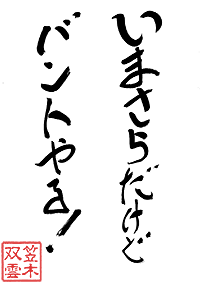 いまさらだけど
バントやる!
笠木
双雲